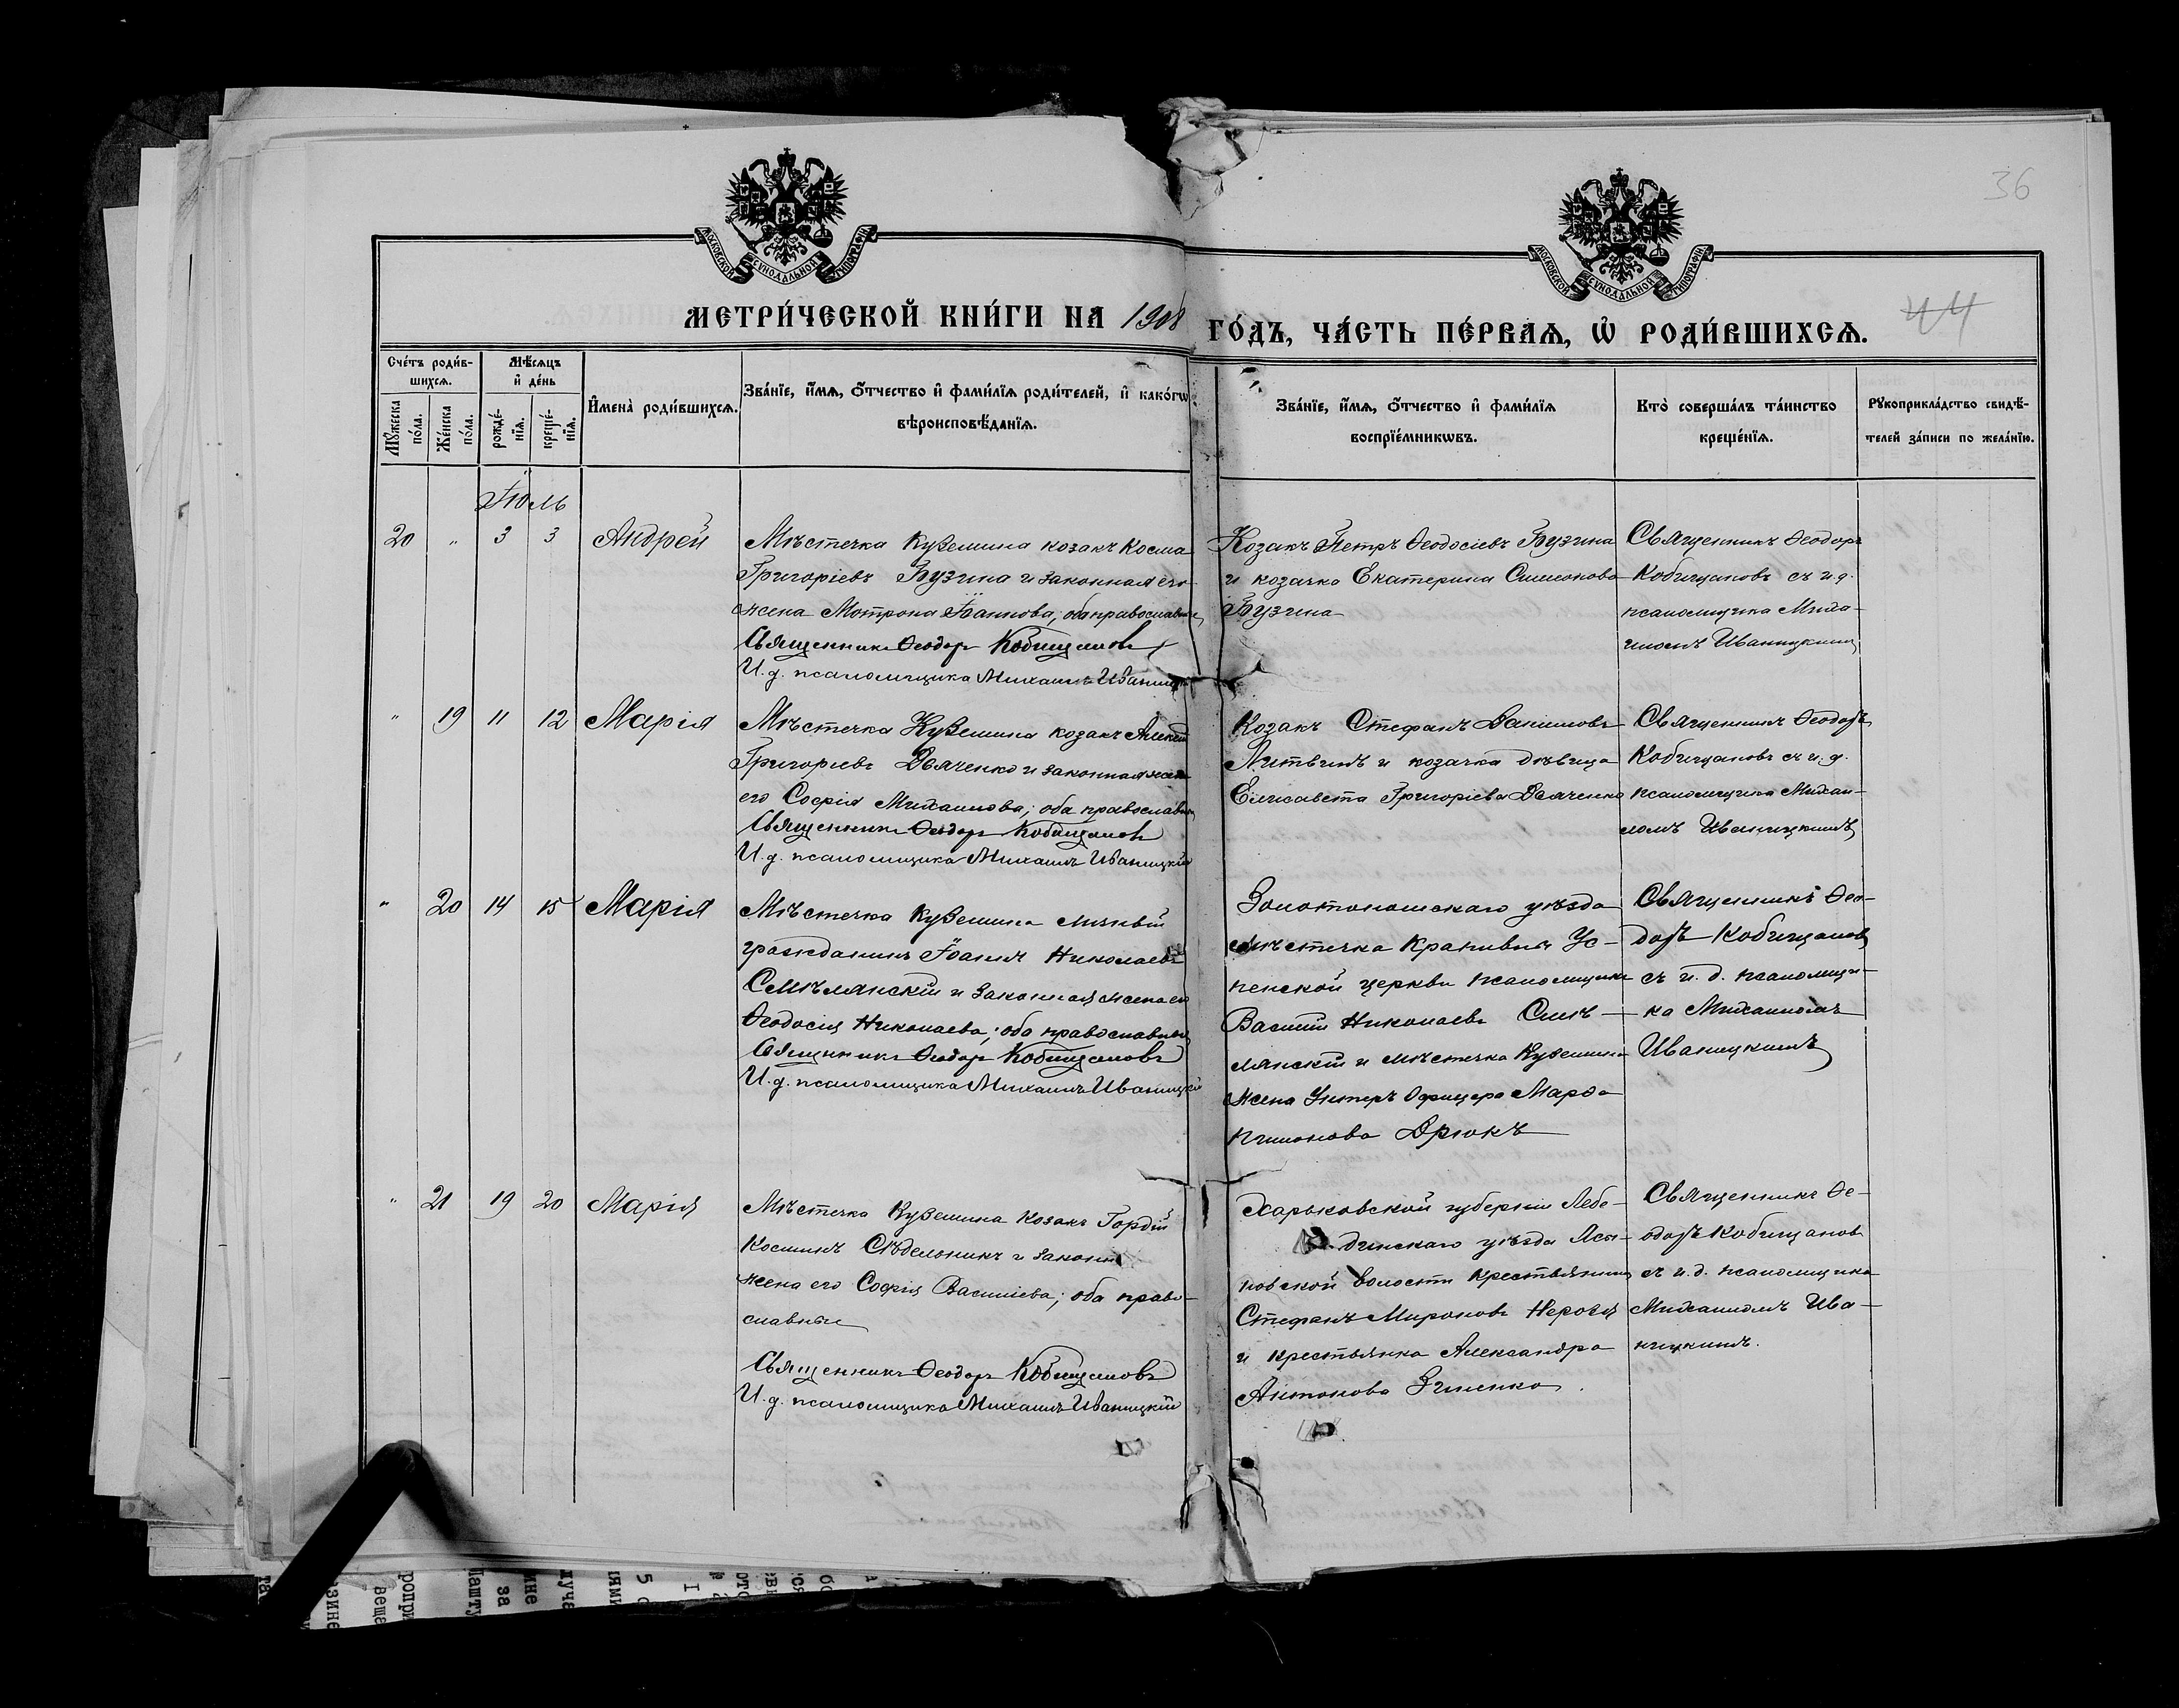 36
МОСКОВСКОЙ СѴНОДАЛЬНОЙ ТИПОГРАФІИ
МОСКОВСКОЙ СѴНОДАЛЬНОЙ ТИПОГРАФІИ
МЕТРИ́ЧЕСКОЙ КНИ́ГИ НА 1908 ГО́ДЪ, ЧА́СТЬ ПЕ́РВАѦ, Ѡ҆ РОДИ́ВШИХСѦ.
44
Сче́тъ роди́в-
шихсѧ.
Мꙋ́жеска
по́ла.
Же́нска
по́ла.
Мѣ́сѧцъ
и҆ де́нь
рожде́-
нїѧ.
креще́-
нїѧ.
И҆мена̀ роди́вшихсѧ.
Зва́нїе, и҆́мѧ, ѻ҆́тчество и҆ фами́лїѧ роди́телей, и҆ како́гѡ
вѣроисповѣ́данїѧ.
Зва́нїе, и҆́мѧ, ѻ҆́тчество и҆ фами́лїѧ
воспрїе́мникѡвъ.
Кто̀ соверша́лъ та́инство
креще́нїѧ.
Рꙋкоприкла́дство свидѣ́-
телей за́писи по жела́нїю.
Іюль
20 " 3 3 Андрей
Мѣстечка Куземина козакъ Косма
Григоріевъ Бузина и законная его
жена Мотрона Іоаннова; оба православные
Священникъ Ѳеодоръ Кобищановъ
И. д. псаломщика Михаилъ Иваницкій
Козакъ Петръ Ѳеодосіевъ Бузина
и козачка Екатерина Симеонова
Бузина
Священникъ Ѳеодоръ
Кобищановъ съ и. д.
псаломщика Миха-
иломъ Иваницкимъ
" 19 11 12 Марія
Мѣстечка Куземина козакъ Алексій
Григоріевъ Дяченко и законная жена
его Софія Михаилова; оба православные
Священникъ Ѳеодоръ Кобищановъ
И. д. псаломщика Михаилъ Иваницкій
Козакъ Стефанъ Даниловъ
Литвинъ и козачка дѣвица
Елисавета Григоріева Дяченко
Священникъ Ѳеодоръ
Кобищановъ съ и. д.
псаломщика Михаи-
ломъ Иваницкимъ
" 20 14 15 Марія
Мѣстечка Куземина личный
гражданинъ Іоаннъ Николаевъ
Смѣлянскій и законная жена его
Ѳеодосія Николаева; оба православные
Священникъ Ѳеодоръ Кобищановъ
И. д. псаломщика Михаилъ Иваницкій
Золотоношскаго уѣзда
мѣстечка Крапивны Ус-
пенской церкви псаломщикъ
Василій Николаевъ Смѣ-
лянскій и мѣстечка Куземина
жена Унтеръ Офицера Марѳа
Дрюкъ
Священникъ Ѳео-
доръ Кобищановъ
съ и. д. псаломщи-
ка Михаиломъ
Иваницкимъ
" 21 19 20 Марія
Мѣстечка Куземина козакъ Гордій
Косминъ Сѣдельникъ и законн
жена его Софія Василіева; оба право-
славные
Священникъ Ѳеодоръ Кобищановъ
И. д. псаломщика Михаилъ Иваницкій
Харьковской губерніи Лебе-
динскаго уѣзда Яса-
новской волости крестьянинъ
Стефанъ Мироновъ
и крестьянка Александра
Антонова Зиненко.
Священникъ Ѳе-
одоръ Кобищановъ
съ и. д. псаломщика
Михаиломъ Ива-
ницкимъ.